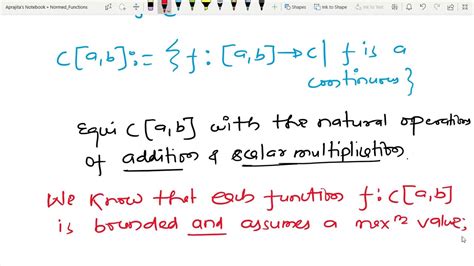 Aprajita's Notebook » Normed_Functions
C[a,b] := {f: [a,b] → C | f is a
continuous}
Equi C[a,b] with the natural operations
of addition & scalar multiplication.
We know that each function f: C[a,b]
is bounded and assumes a max^m value;